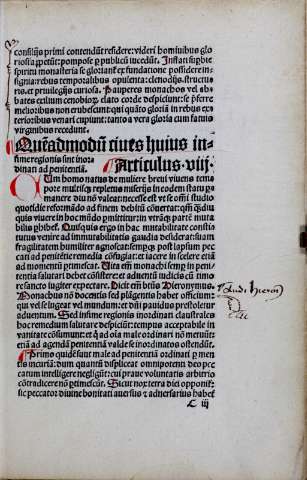 consilijs primi contendūt residere: videri hominibus glo
riosi appetūt: pompose ī publicū incedūt. Instari superbie
spiritu monasteria se gloriant ex fundatione possidere in-
signia: rebus temporalibus opulenta: clenodijs: structu-
ris: et priuilegijs curiosa. Pauperes monachos vel ab-
bates exilium cenobiorū elato corde despiciunt: se preferre
melioribus non erubescunt: qui quāto gloriā in rebus ex-
terioribus venari cupiunt: tanto a vera gloria cum fatuis
virginibus recedunt.
Quēadmodū ciues huius in-
fime regionis sunt inor
dinati ad penitentiā. Articulus. vij.
Cum homo natus de muliere breui viuens tem
pore multis repletus miserijs in eodem statu per
manere diu nō valeat: necesse est vt se omni studio
quottidie reformādo ad finem debitū conuertat:
quis viuere in hoc mūdo permittitur: in vtramque partē muta
bilis perhibet. Quisquis ergo in hac mutabilitate constitu
tus venire ad immutabilitatis gaudia desiderat: suam
fragilitatem humiliter agnoscat: semper post lapsum pec
cati ad penitētie remedia confugiat: et iacere in scelere etiā
ad momentū pertimescat. Vitā em monachi semp in peni-
tentia salutari debet consistere: et aduentū iudicis cū timo
re sancto iugiter expectare. Dicit em beatus Hieronymus.
Monachus nō docentis sed plāgentis habet officium:
qui vel se lugeat vel mundum: et dni pauidus prestoletur
aduentum. Sed infime regionis inordinati claustrales
hoc remedium salutare despiciūt: tempus acceptabile in
vanitate cōsumunt: et quod oīa male ordinari nō metuūt:
etiā ad agendā penitentiā valde se inordinatos ostendūt.
Primo quidē sunt male ad penitentiā ordinati per men
tis incuriā: dum quantū displiceat omnipotenti deo pec
catum intelligere negligūt: cui praue voluntatis arbitrio
cōtradicere nō pertimescūt. Sicut nox terra diei opponit:
sic peccator diuine bonitati aduersus et aduersarius habet
C iij
Aud. hieron